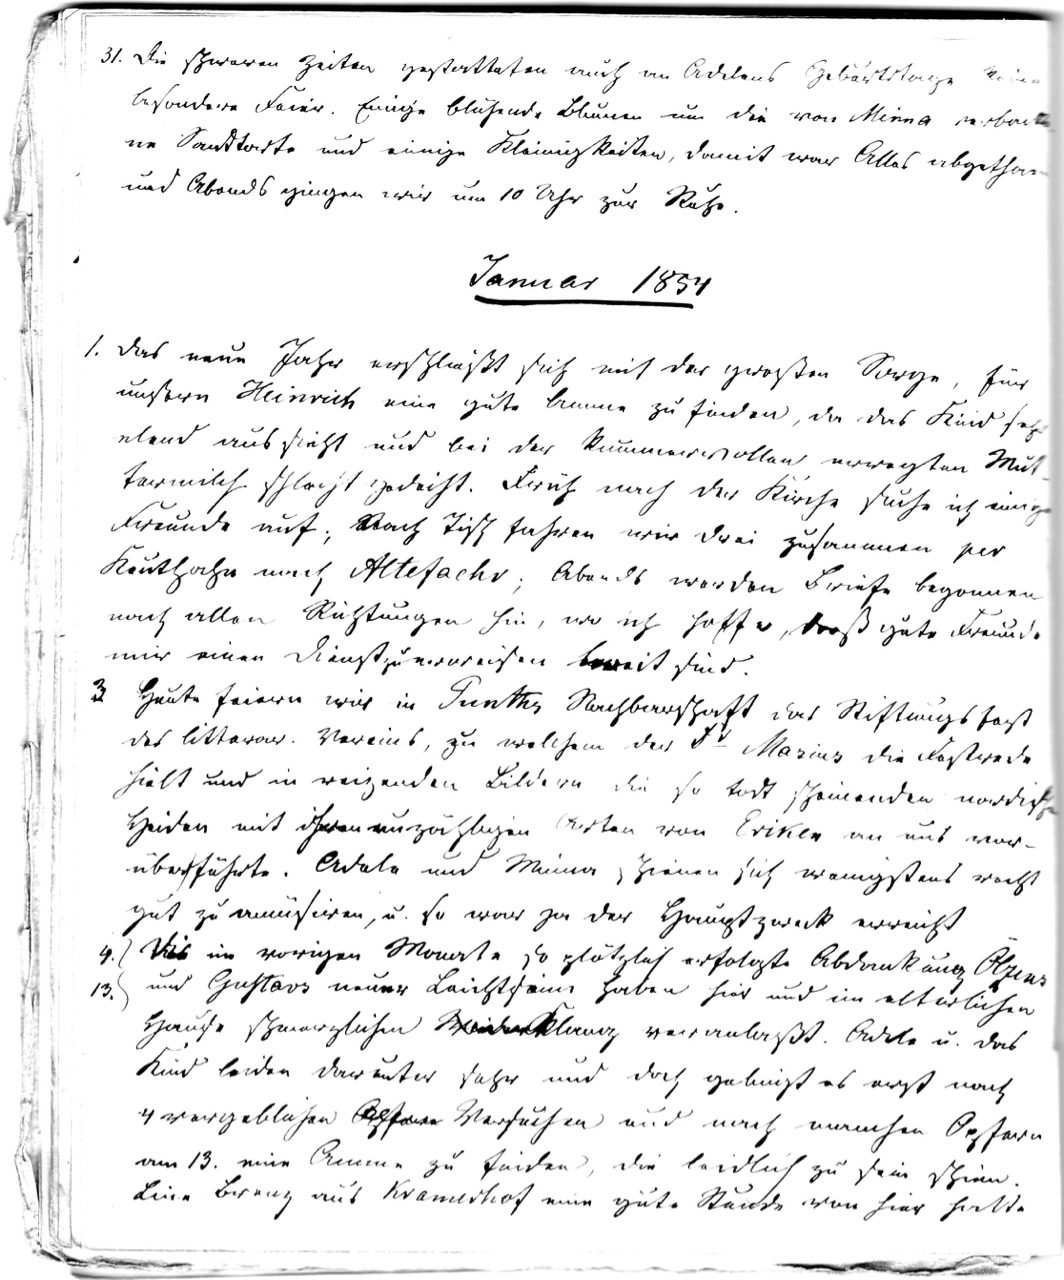 31. Die schweren Zeiten gestatteten auch an Adelens Geburtstage keine
besondere Feier. Einige blühende Blumen um die von Minna verbacke-
ne Sandtorte und einige Kleinigkeiten, damit war Alles abgethan
und Abends gingen wir um 10 Uhr zur Ruhe.
Januar 1854
1. Das neue Jahr erschließt sich mit der großen Sorge, für
unsern Heinrich eine gute Amme zu finden, da das Kind sehr
elend aussieht und bei der kummervollen erregten Mut-
termilch schlecht gedeiht. Früh nach der Kirche suche ich einige
Freunde auf; Nach Tisch fahren wir drei zusammen per
Kahn nach Altefaehr; Abends werden Briefe begonnen
nach allen Richtungen hin, wo ich hoffe, daß gute Freunde
mir einen Dienst zu erweisen bereit sind.
3 Heute feiern wir in Nachbarschaft das Stiftungsfest
des litterar. Vereins, zu welchem der Dr Marius die Festrede
hielt und in reizenden Bildern die so todt scheinenden nordischen
Heiden mit ihren unzähligen Arten von Eriken an uns vor-
überführte. Adele und Minna schienen sich wenigstens recht
gut zu amüsiren, u. so war ja der Hauptzweck erreicht
4.) Die im vorigen Monate so plötzlich erfolgte Abdankung
13.) und Gustavs neuer Leichtsinn haben hier und im elterlichen
Hause schmerzlichen Klang veranlaßt. Adele u. das
Kind leiden darunter sehr und doch gelingt es erst nach
4 vergeblichen Versuchen und nach manchen Opfern
am 13. eine Amme zu finden, die leidlich zu sein schien.
Line Brenz aus Kramerhof eine gute Stunde von hier hatte